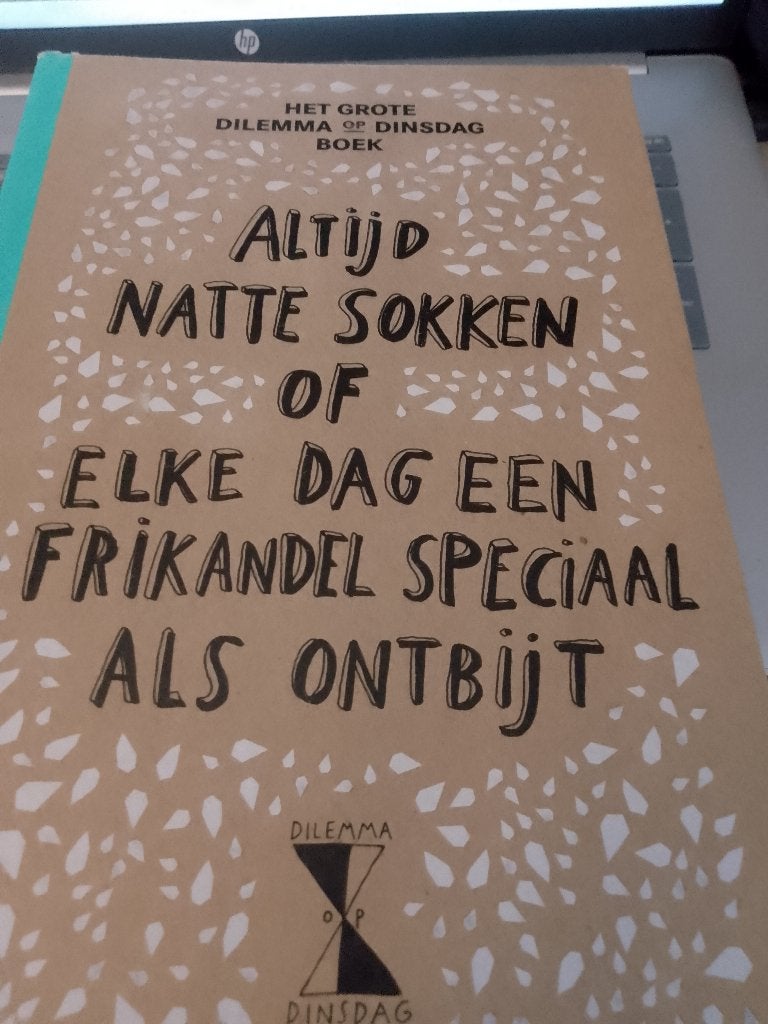 hp
HET GROTE
DILEMMA OP DINSDAG
BOEK
ALTIJD
NATTE SOKKEN
OF
ELKE DAG EEN
FRIKANDEL SPECIAAL
ALS ONTBIJT
DILEMMA
OP
DINSDAG